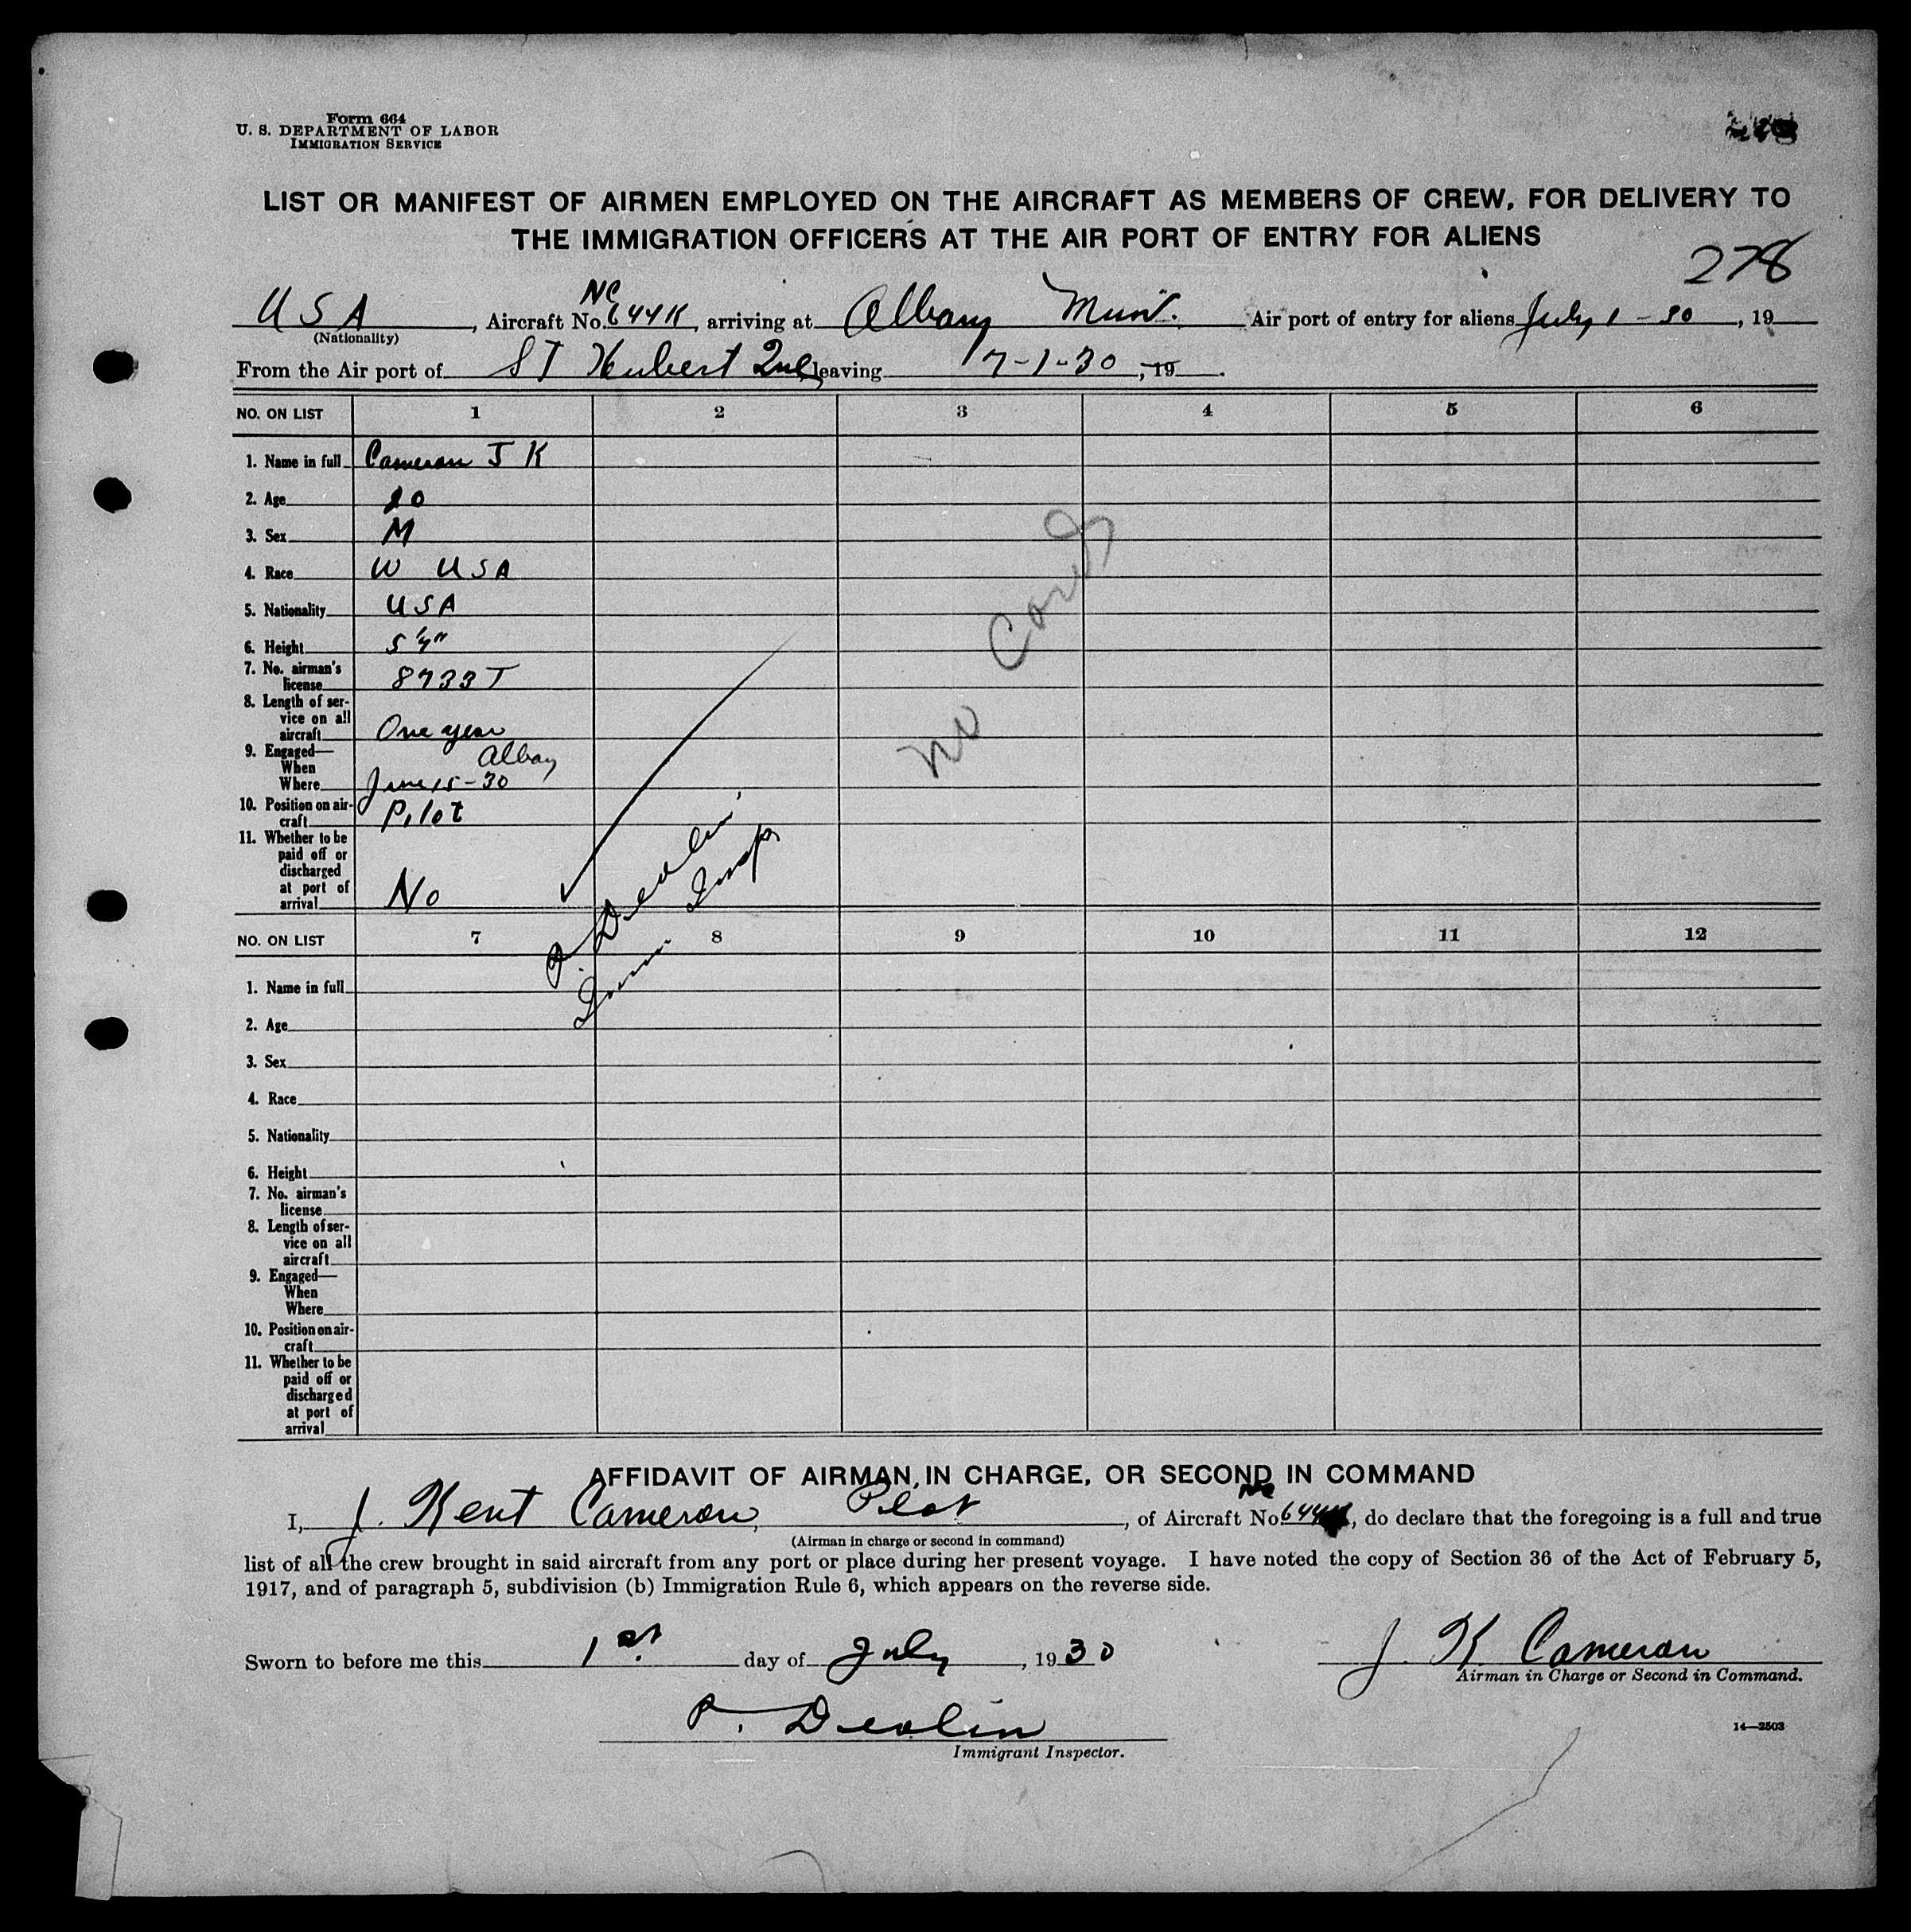 Form 664
U. S. DEPARTMENT OF LABOR
IMMIGRATION SERVICE
LIST OR MANIFEST OF AIRMEN EMPLOYED ON THE AIRCRAFT AS MEMBERS OF CREW, FOR DELIVERY TO
THE IMMIGRATION OFFICERS AT THE AIR PORT OF ENTRY FOR ALIENS
278
NC
USA, Aircraft No. 644K, arriving at Albany Mun. Air port of entry for aliens July 1-30, 19
(Nationality)
From the Air port of ST Hubert Que, leaving 7-1-30, 19.
NO. ON LIST 1 2 3 4 5 6
1. Name in full Cameron J K
2. Age 20
3. Sex M
4. Race W USA
5. Nationality USA
6. Height 5'7"
7. No. airman's
license 8733T
8. Length of ser-
vice on all
aircraft One year
9. Engaged—
When Albany
Where June 15-30
10. Position on air-
craft Pilot
11. Whether to be
paid off or
discharged
at port of
arrival No
no Card
P. Devlin
Imm. Insp
NO. ON LIST 7 8 9 10 11 12
1. Name in full
2. Age
3. Sex
4. Race
5. Nationality
6. Height
7. No. airman's
license
8. Length of ser-
vice on all
aircraft
9. Engaged—
When
Where
10. Position on air-
craft
11. Whether to be
paid off or
discharged
at port of
arrival
AFFIDAVIT OF AIRMAN IN CHARGE, OR SECOND IN COMMAND
NC
I, J. Kent Cameron, Pilot, of Aircraft No 644K, do declare that the foregoing is a full and true
(Airman in charge or second in command)
list of all the crew brought in said aircraft from any port or place during her present voyage. I have noted the copy of Section 36 of the Act of February 5,
1917, and of paragraph 5, subdivision (b) Immigration Rule 6, which appears on the reverse side.
Sworn to before me this 1st. day of July, 1930
J. K Cameron
Airman in Charge or Second in Command.
P. Devlin
Immigrant Inspector.
14—2503